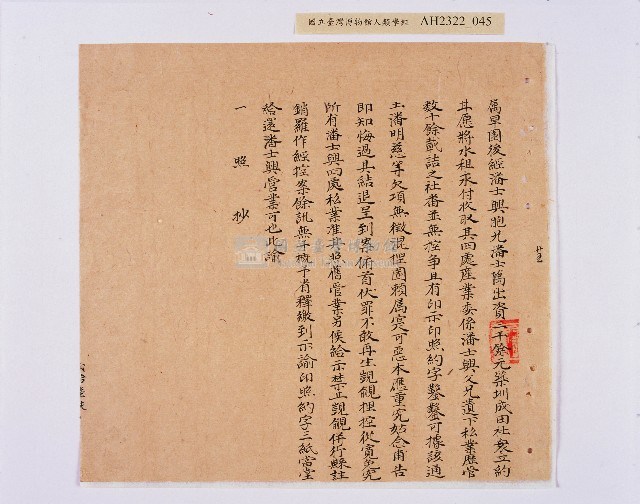 國立臺灣博物館人類學組 AH2322 045
屬旱園後經潘士興胞兄潘士萬出資二千餘元築圳成田社眾立約
甘愿將水租永付收取其四處產業委係潘士興父兄遺下私業歷管
數十餘載詰之社番並無控爭且有印示印照約字鑿鑿可據該通
土潘明慈等欠項無徵混捏圖賴屬實可惡本應重究姑念甫告
即知悔過具結退呈到案俯首伏罪不敢再生覬覦捏控從寬免究
所有潘士興四處私業准其照舊管業另候給示禁止覬覦併行縣註
銷羅作經控案餘訊無干概予省釋繳到示諭印照約字三紙當堂
給還潘士興管業可也此諭
一 照 抄
國立臺灣博物館